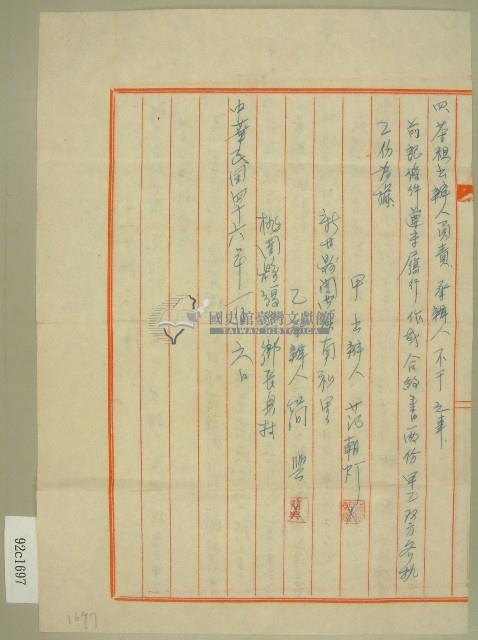 四、茶租出辦人負責、承辦人不干之事
前記條件尊手履行依哉合約書兩份甲乙双方各執
乙份為據
甲 出辦人 范朝灯
新竹縣關西鎮南和里
乙 承辦人 簡 興
桃園縣 鄉長興村
中華民國四十六年一月六日
國史館臺灣文獻館
TAIWAN HISTORICA
92c1697
1697